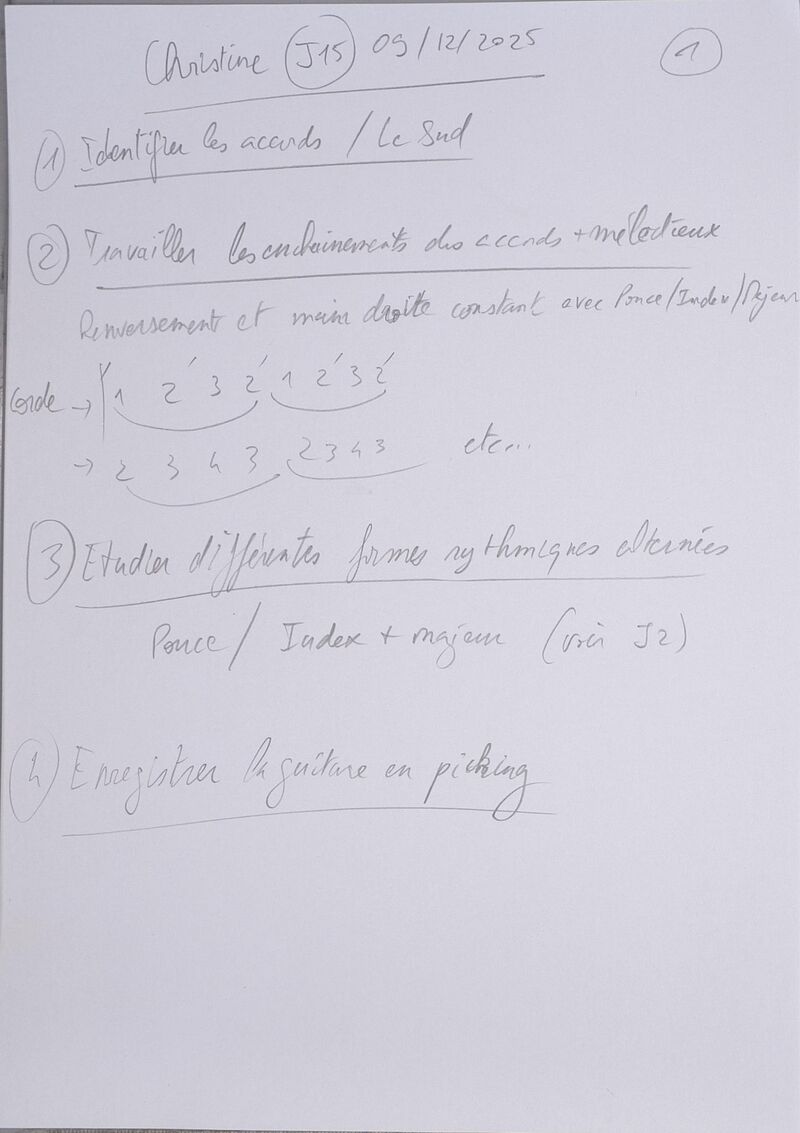 Christine J15 09/12/2025 1
1 Identifier les accords / Le Sud
2 Travailler les enchainements des accords + mélodieux
Renversement et main droite constant avec Pouce/Index/Majeur
Corde → 1 2' 3 2' 1 2' 3 2'
→ 2 3 4 3 2 3 4 3 etc...
3 Etudier différentes formes rythmiques alternées
Pouce / Index + majeur (voir J2)
4 Enregistrer la guitare en picking